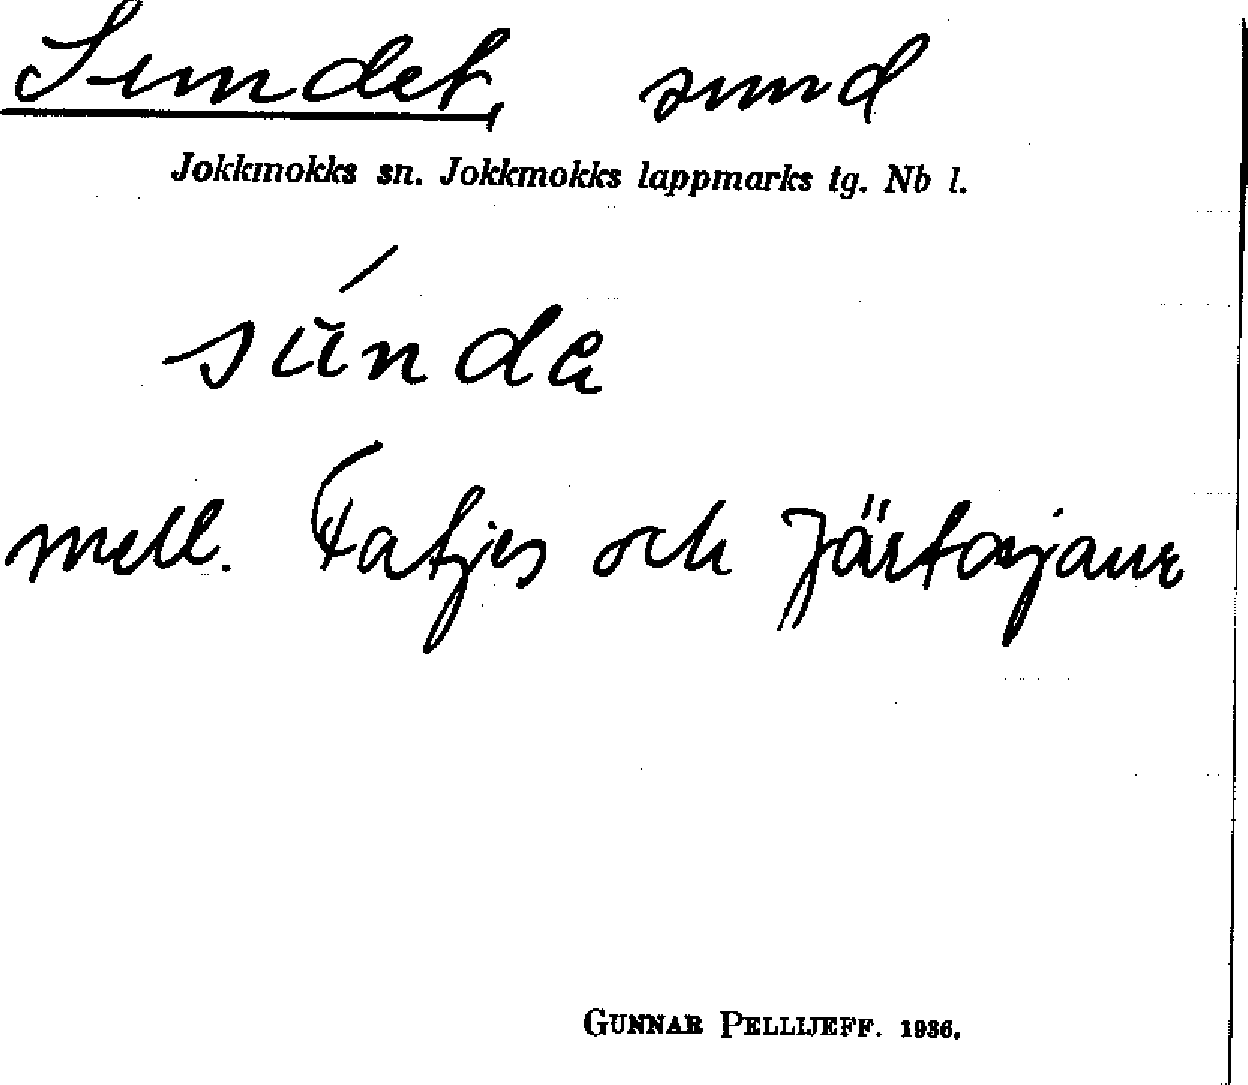 Sundet, sund
Jokkmokks sn. Jokkmokks lappmarks tg. Nb l.
súnda
mell. Fatjes och Järtajaure
GUNNAR PELLIJEFF. 1936.